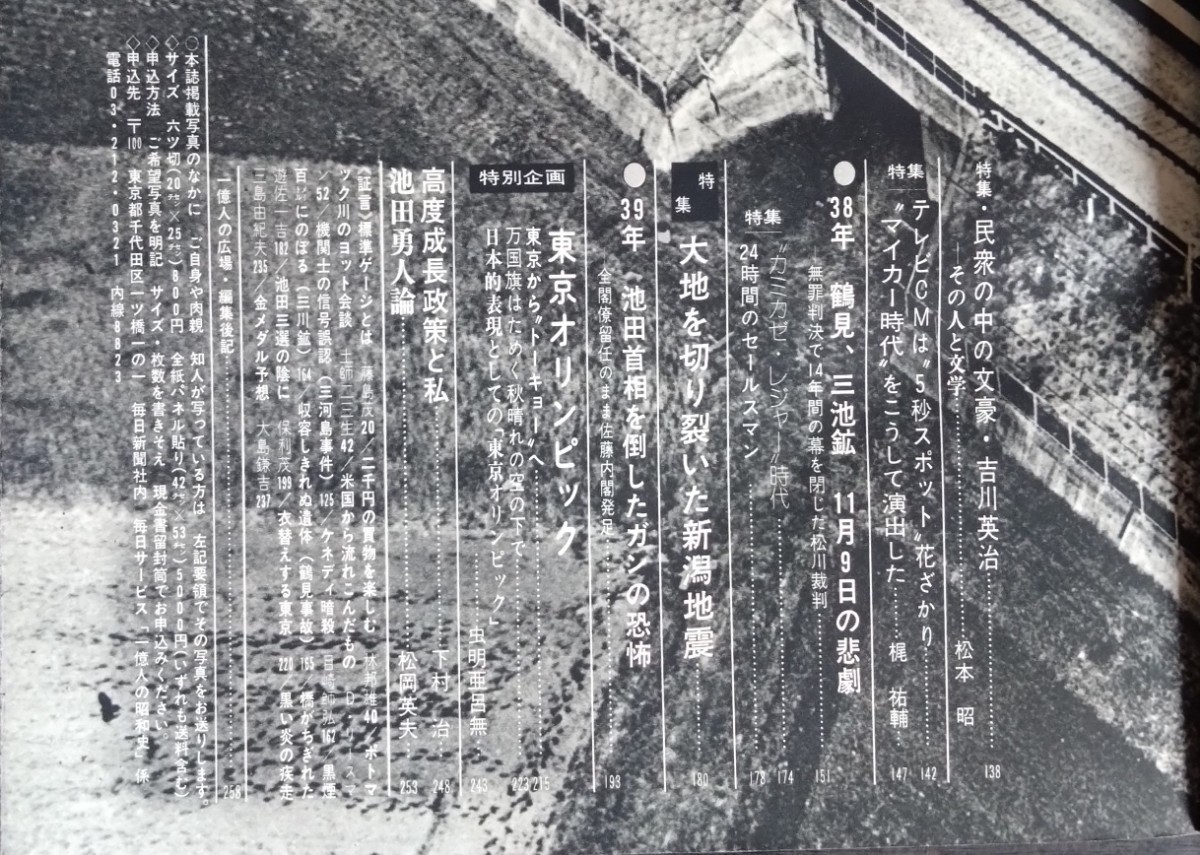 特集・民衆の中の文豪・吉川英治
―その人と文学…………松本 昭 138
特集 テレビCMは"5秒スポット"花ざかり………142
"マイカー時代"をこうして演出した……梶 祐輔 147
●38年 鶴見、三池鉱 11月9日の悲劇
―無罪判決で14年間の幕を閉じた松川裁判………151
特集 "カミカゼ・レジャー"時代………174
24時間のセールスマン………178
特集 大地を切り裂いた新潟地震………180
●39年 池田首相を倒したガンの恐怖
―全閣僚留任のまま佐藤内閣発足………193
特別企画 東京オリンピック
東京から"トーキョー"へ………215
万国旗はためく秋晴れの空の下で………223
日本的表現としての「東京オリンピック」………虫明亜呂無 243
高度成長政策と私………下村 治 248
池田勇人論………松岡英夫 253
〈証言〉標準ゲージとは 藤島茂20/二千円の買物を楽しむ 40/ポトマ
ック川のヨット会談 土師二三生42/米国から流れこんだもの
/52/機関士の信号誤認(三河島事件)125/ケネディ暗殺 162/黒煙
百㍍にのぼる(三川鉱)164/収容しきれぬ遺体(鶴見事故)165/橋がちぎれた
遊佐一吉182/池田三選の陰に 保利茂199/衣替えする東京 228/黒い炎の疾走
三島由紀夫235/金メダル予想 大島鎌吉237
一億人の広場・編集後記………258
○本誌掲載写真のなかに ご自身や肉親 知人が写っている方は 左記要領でその写真をお送りします。
◇サイズ 六ツ切(20㌢×25㌢)800円 全紙パネル貼り(42㌢×53㌢)5000円(いずれも送料含む)
◇申込方法 ご希望写真を明記 サイズ・枚数を書きそえ 現金書留封筒でお申込みください。
◇申込先 〒100 東京都千代田区一ツ橋一の一 毎日新聞社内 毎日サービス「一億人の昭和史」係
電話03・212・0321 内線8823